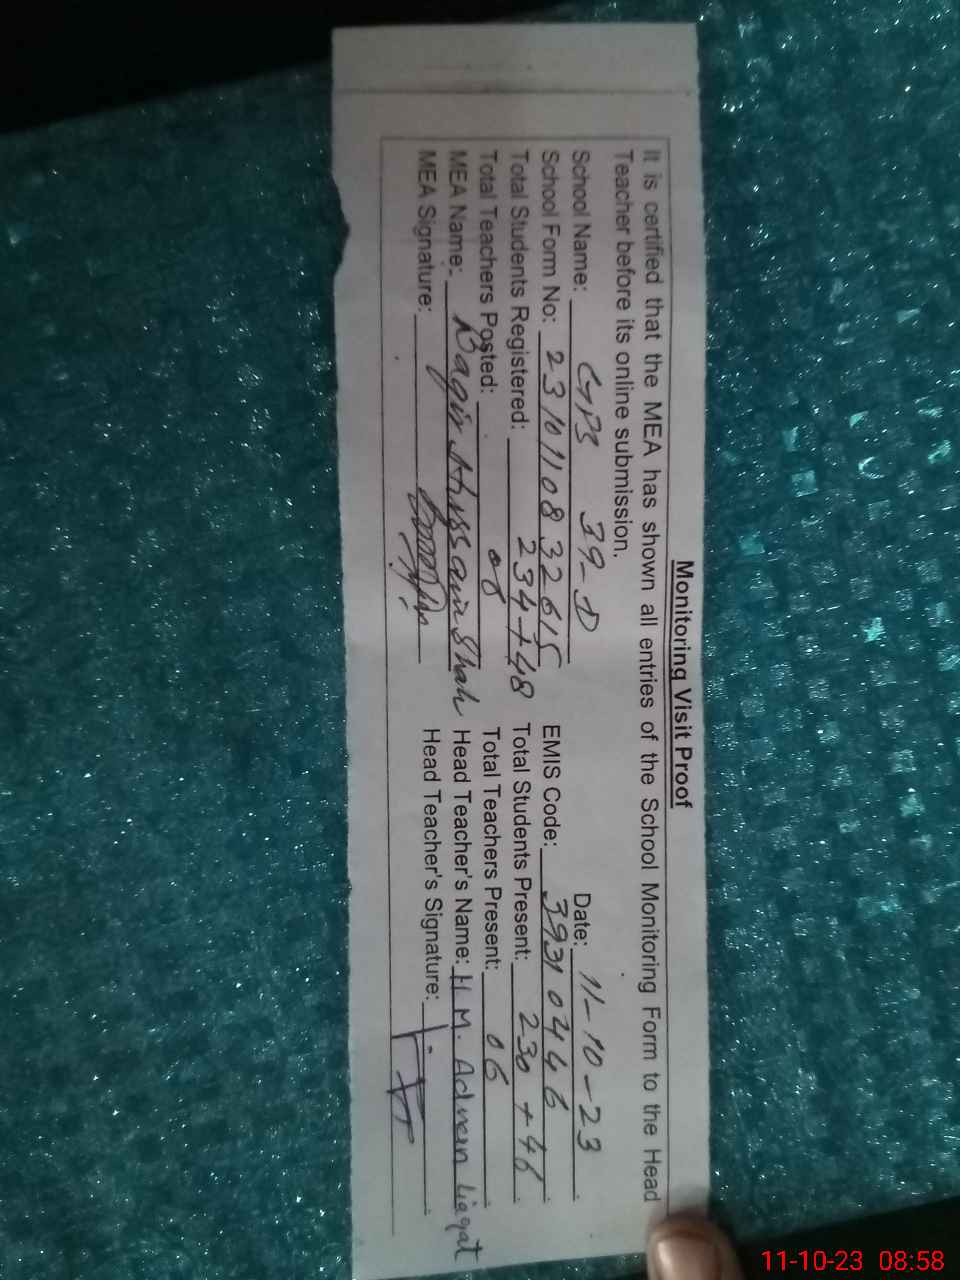 Monitoring Visit Proof
It is certified that the MEA has shown all entries of the School Monitoring Form to the Head
Teacher before its online submission.
School Name: GPS 39-D Date: 11-10-23
School Form No: 23101108 32615 EMIS Code: 39310446
Total Students Registered: 234+48 Total Students Present: 230+46
Total Teachers Posted: 08 Total Teachers Present: 06
MEA Name: Baqir Hussain Shah Head Teacher's Name: H M. Adnan Liaqat
MEA Signature: Head Teacher's Signature:
11-10-23 08:58